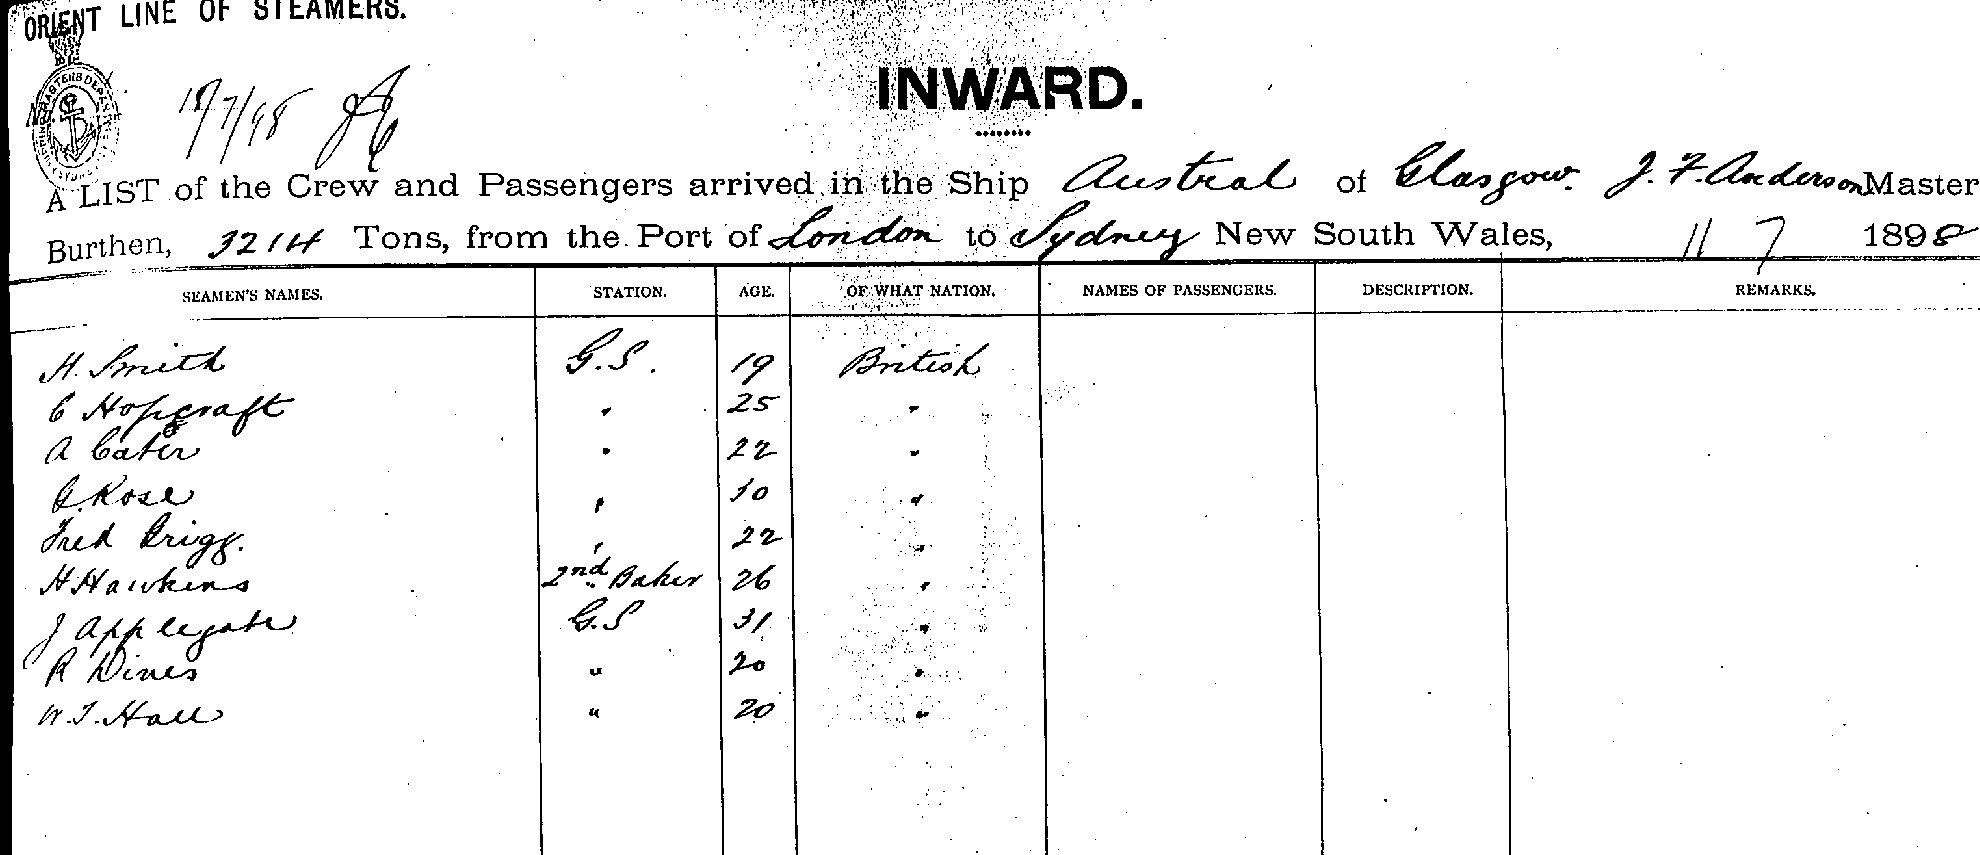 ORIENT LINE OF STEAMERS.
INWARD.
A LIST of the Crew and Passengers arrived in the Ship Austral of Glasgow. J. F. Anderson Master
Burthen, 3214 Tons, from the Port of London to Sydney New South Wales, 11 7 1898
SEAMEN'S NAMES. STATION. AGE. OF WHAT NATION. NAMES OF PASSENGERS. DESCRIPTION. REMARKS.
H. Smith G.S. 19 British
C Hopcraft " 25 "
A Cater " 22 "
Rose " 10 "
Fred Grigg. " 22 "
H Hawkins 2nd Baker 26 "
J Applegate G.S 31 "
R Dines " 20 "
W. T. Hall " 20 "